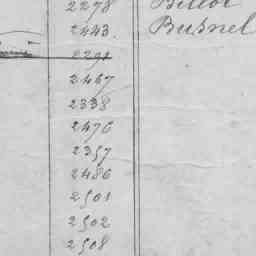 2278 Billot
2443 Busnel
2291
2467
2338
2476
2357
2486
2501
2502
2508